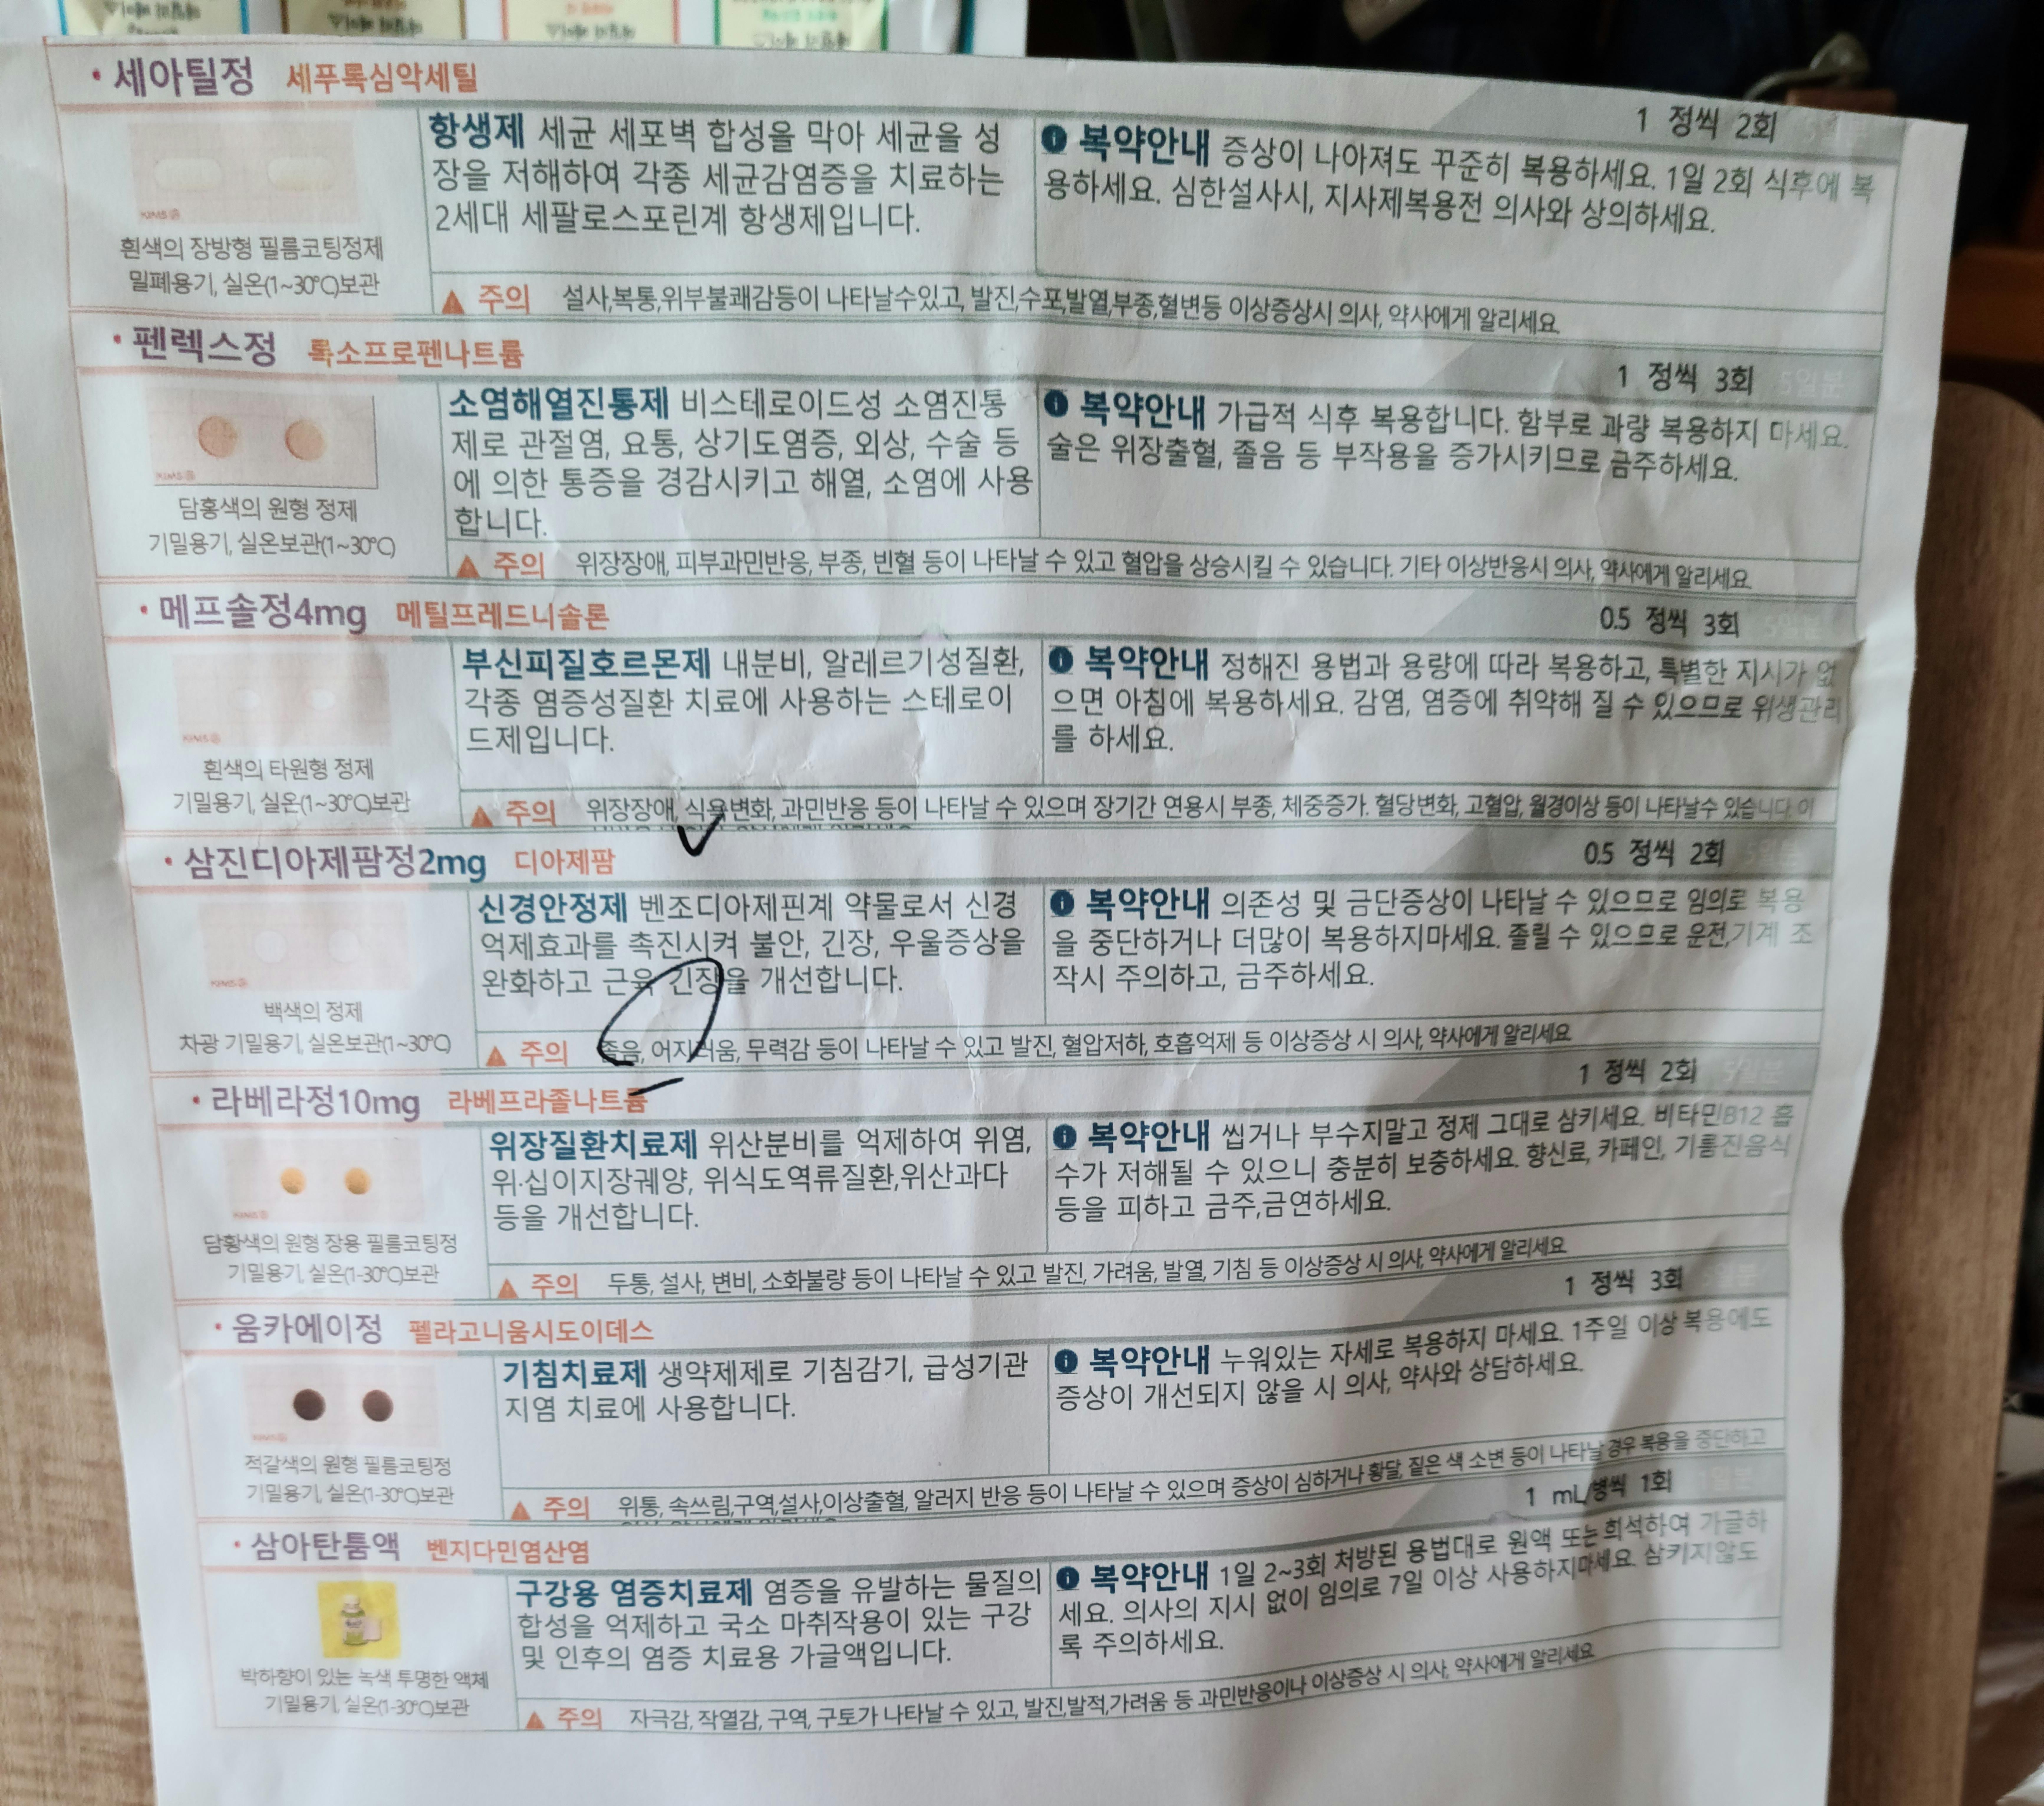 • 세아틸정 세푸록심악세틸
1 정씩 2회
항생제 세균 세포벽 합성을 막아 세균을 성
장을 저해하여 각종 세균감염증을 치료하는
2세대 세팔로스포린계 항생제입니다.
복약안내 증상이 나아져도 꾸준히 복용하세요. 1일 2회 식후에 복
용하세요. 심한설사시, 지사제복용전 의사와 상의하세요.
KIMS
흰색의 장방형 필름코팅정제
밀폐용기, 실온(1~30℃)보관
주의 설사,복통,위부불쾌감등이 나타날수있고, 발진,수포,발열,부종,혈변등 이상증상시 의사, 약사에게 알리세요
• 펜렉스정 록소프로펜나트륨
1 정씩 3회 5일분
소염해열진통제 비스테로이드성 소염진통
제로 관절염, 요통, 상기도염증, 외상, 수술 등
에 의한 통증을 경감시키고 해열, 소염에 사용
합니다.
복약안내 가급적 식후 복용합니다. 함부로 과량 복용하지 마세요.
술은 위장출혈, 졸음 등 부작용을 증가시키므로 금주하세요.
KIMS
담홍색의 원형 정제
기밀용기, 실온보관(1~30℃)
주의 위장장애, 피부과민반응, 부종, 빈혈 등이 나타날 수 있고 혈압을 상승시킬 수 있습니다. 기타 이상반응시 의사, 약사에게 알리세요.
• 메프솔정4mg 메틸프레드니솔론
0.5 정씩 3회 5일분
부신피질호르몬제 내분비, 알레르기성질환,
각종 염증성질환 치료에 사용하는 스테로이
드제입니다.
복약안내 정해진 용법과 용량에 따라 복용하고, 특별한 지시가 없
으면 아침에 복용하세요. 감염, 염증에 취약해 질 수 있으므로 위생관리
를 하세요.
KIMS
흰색의 타원형 정제
기밀용기, 실온(1~30℃)보관
주의 위장장애, 식욕변화, 과민반응 등이 나타날 수 있으며 장기간 연용시 부종, 체중증가. 혈당변화, 고혈압, 월경이상 등이 나타날수 있습니다. 이
• 삼진디아제팜정2mg 디아제팜
0.5 정씩 2회 5일분
신경안정제 벤조디아제핀계 약물로서 신경
억제효과를 촉진시켜 불안, 긴장, 우울증상을
완화하고 근육 긴장을 개선합니다.
복약안내 의존성 및 금단증상이 나타날 수 있으므로 임의로 복용
을 중단하거나 더많이 복용하지마세요. 졸릴 수 있으므로 운전,기계 조
작시 주의하고, 금주하세요.
KIMS
백색의 정제
차광 기밀용기, 실온보관(1~30℃)
주의 졸음, 어지러움, 무력감 등이 나타날 수 있고 발진, 혈압저하, 호흡억제 등 이상증상 시 의사, 약사에게 알리세요
• 라베라정10mg 라베프라졸나트륨
1 정씩 2회
위장질환치료제 위산분비를 억제하여 위염,
위·십이지장궤양, 위식도역류질환,위산과다
등을 개선합니다.
복약안내 씹거나 부수지말고 정제 그대로 삼키세요. 비타민B12 흡
수가 저해될 수 있으니 충분히 보충하세요. 향신료, 카페인, 기름진음식
등을 피하고 금주,금연하세요.
KIMS
담황색의 원형 장용 필름코팅정
기밀용기, 실온(1-30℃)보관
주의 두통, 설사, 변비, 소화불량 등이 나타날 수 있고 발진, 가려움, 발열, 기침 등 이상증상 시 의사, 약사에게 알리세요
• 움카에이정 펠라고니움시도이데스
1 정씩 3회
기침치료제 생약제제로 기침감기, 급성기관
지염 치료에 사용합니다.
복약안내 누워있는 자세로 복용하지 마세요. 1주일 이상 복용에도
증상이 개선되지 않을 시 의사, 약사와 상담하세요.
적갈색의 원형 필름코팅정
기밀용기, 실온(1-30℃)보관
주의 위통, 속쓰림,구역,설사,이상출혈, 알러지 반응 등이 나타날 수 있으며 증상이 심하거나 황달, 짙은 색 소변 등이 나타날 경우 복용을 중단하고
• 삼아탄툼액 벤지다민염산염
1 mL/병씩 1회
구강용 염증치료제 염증을 유발하는 물질의
합성을 억제하고 국소 마취작용이 있는 구강
및 인후의 염증 치료용 가글액입니다.
복약안내 1일 2~3회 처방된 용법대로 원액 또는 희석하여 가글하
세요. 의사의 지시 없이 임의로 7일 이상 사용하지마세요. 삼키지않도
록 주의하세요.
박하향이 있는 녹색 투명한 액체
기밀용기, 실온(1-30℃)보관
주의 자극감, 작열감, 구역, 구토가 나타날 수 있고, 발진,발적,가려움 등 과민반응이나 이상증상 시 의사, 약사에게 알리세요